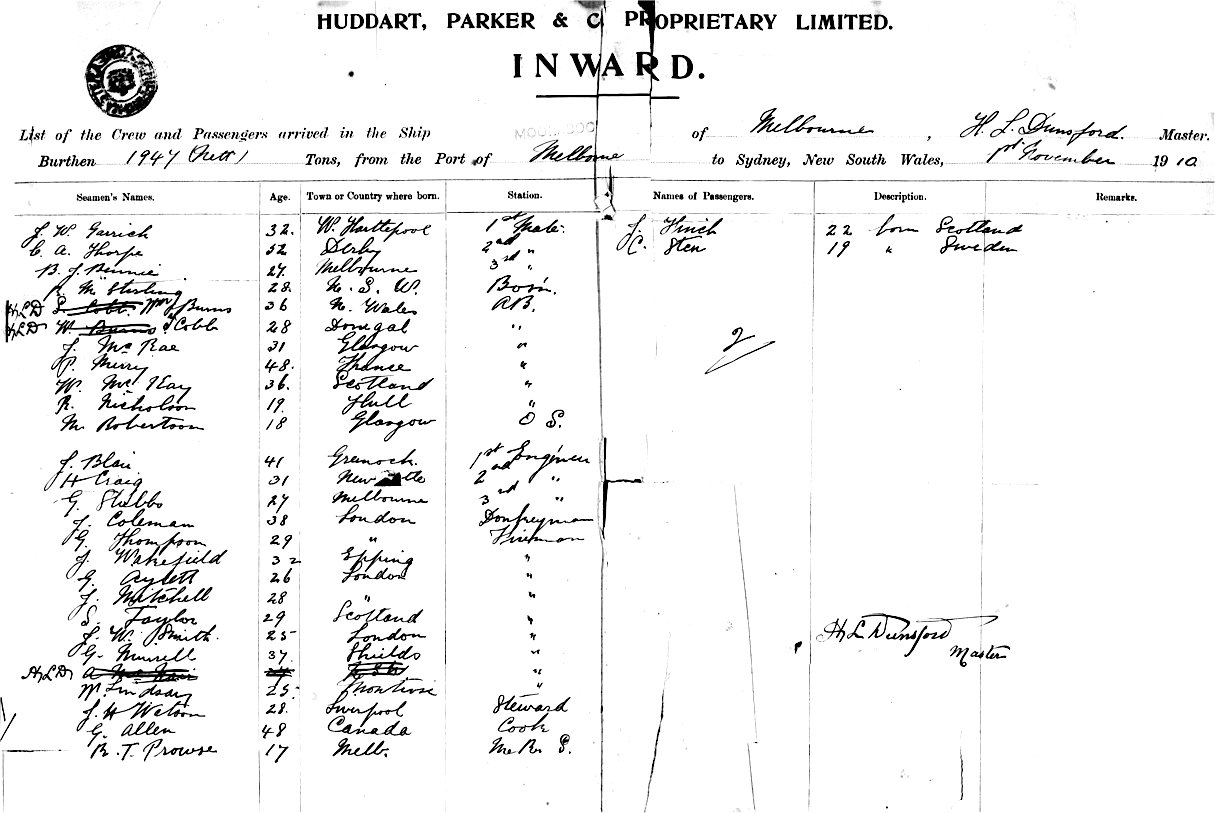 HUDDART, PARKER & C PROPRIETARY LIMITED.
INWARD.
List of the Crew and Passengers arrived in the Ship of Melbourne, H. L. Dunsford. Master.
Burthen 1947 (Nett) Tons, from the Port of Melborne to Sydney, New South Wales, 1st November 1910
Seamen's Names. Age. Town or Country where born. Station. Names of Passengers. Description. Remarks.
J. W. Garrick 32. W. Hartlepool 1st Mate. J. Finch 22 born Scotland
C. A. Thorpe 52 Derby 2nd " C. Sten 19 " Sweden
B. J. Bennie 27. Melbourne 3rd "
R. McStirling 28. N. S. W. Bosn.
HLD S. Cobb. Wm J Burns 36 N. Wales AB.
HLD W. Burns S Cobb 28 Donegal "
J. McRae 31 Glasgow "
P. Merry 48. France "
W. McKay 36. Scotland "
R. Nicholson 19. Hull "
M. Robertson 18 Glasgow O S.
2
J. Blair 41 Greenock. 1st Engineer
H Craig 31 New tle 2nd "
G. Stubbs 27 Melbourne 3rd "
J. Coleman 38 London Donkeyman
G. Thompson 29 " Fireman
J. Wakefield 32 Epping "
G. Aylett 26 London "
J. Mitchell 28 " "
S. Taylor 29 Scotland "
J. W. Smith. 25 London "
G. Murrell 37. Shields "
HLD A McNair "
W. Lindsay 25. Montrose "
J. H Watson 28. Liverpool Steward
G. Allen 48 Canada Cook
R. T. Prowse 17 Melb. Me R. S.
H L Dunsford
Master